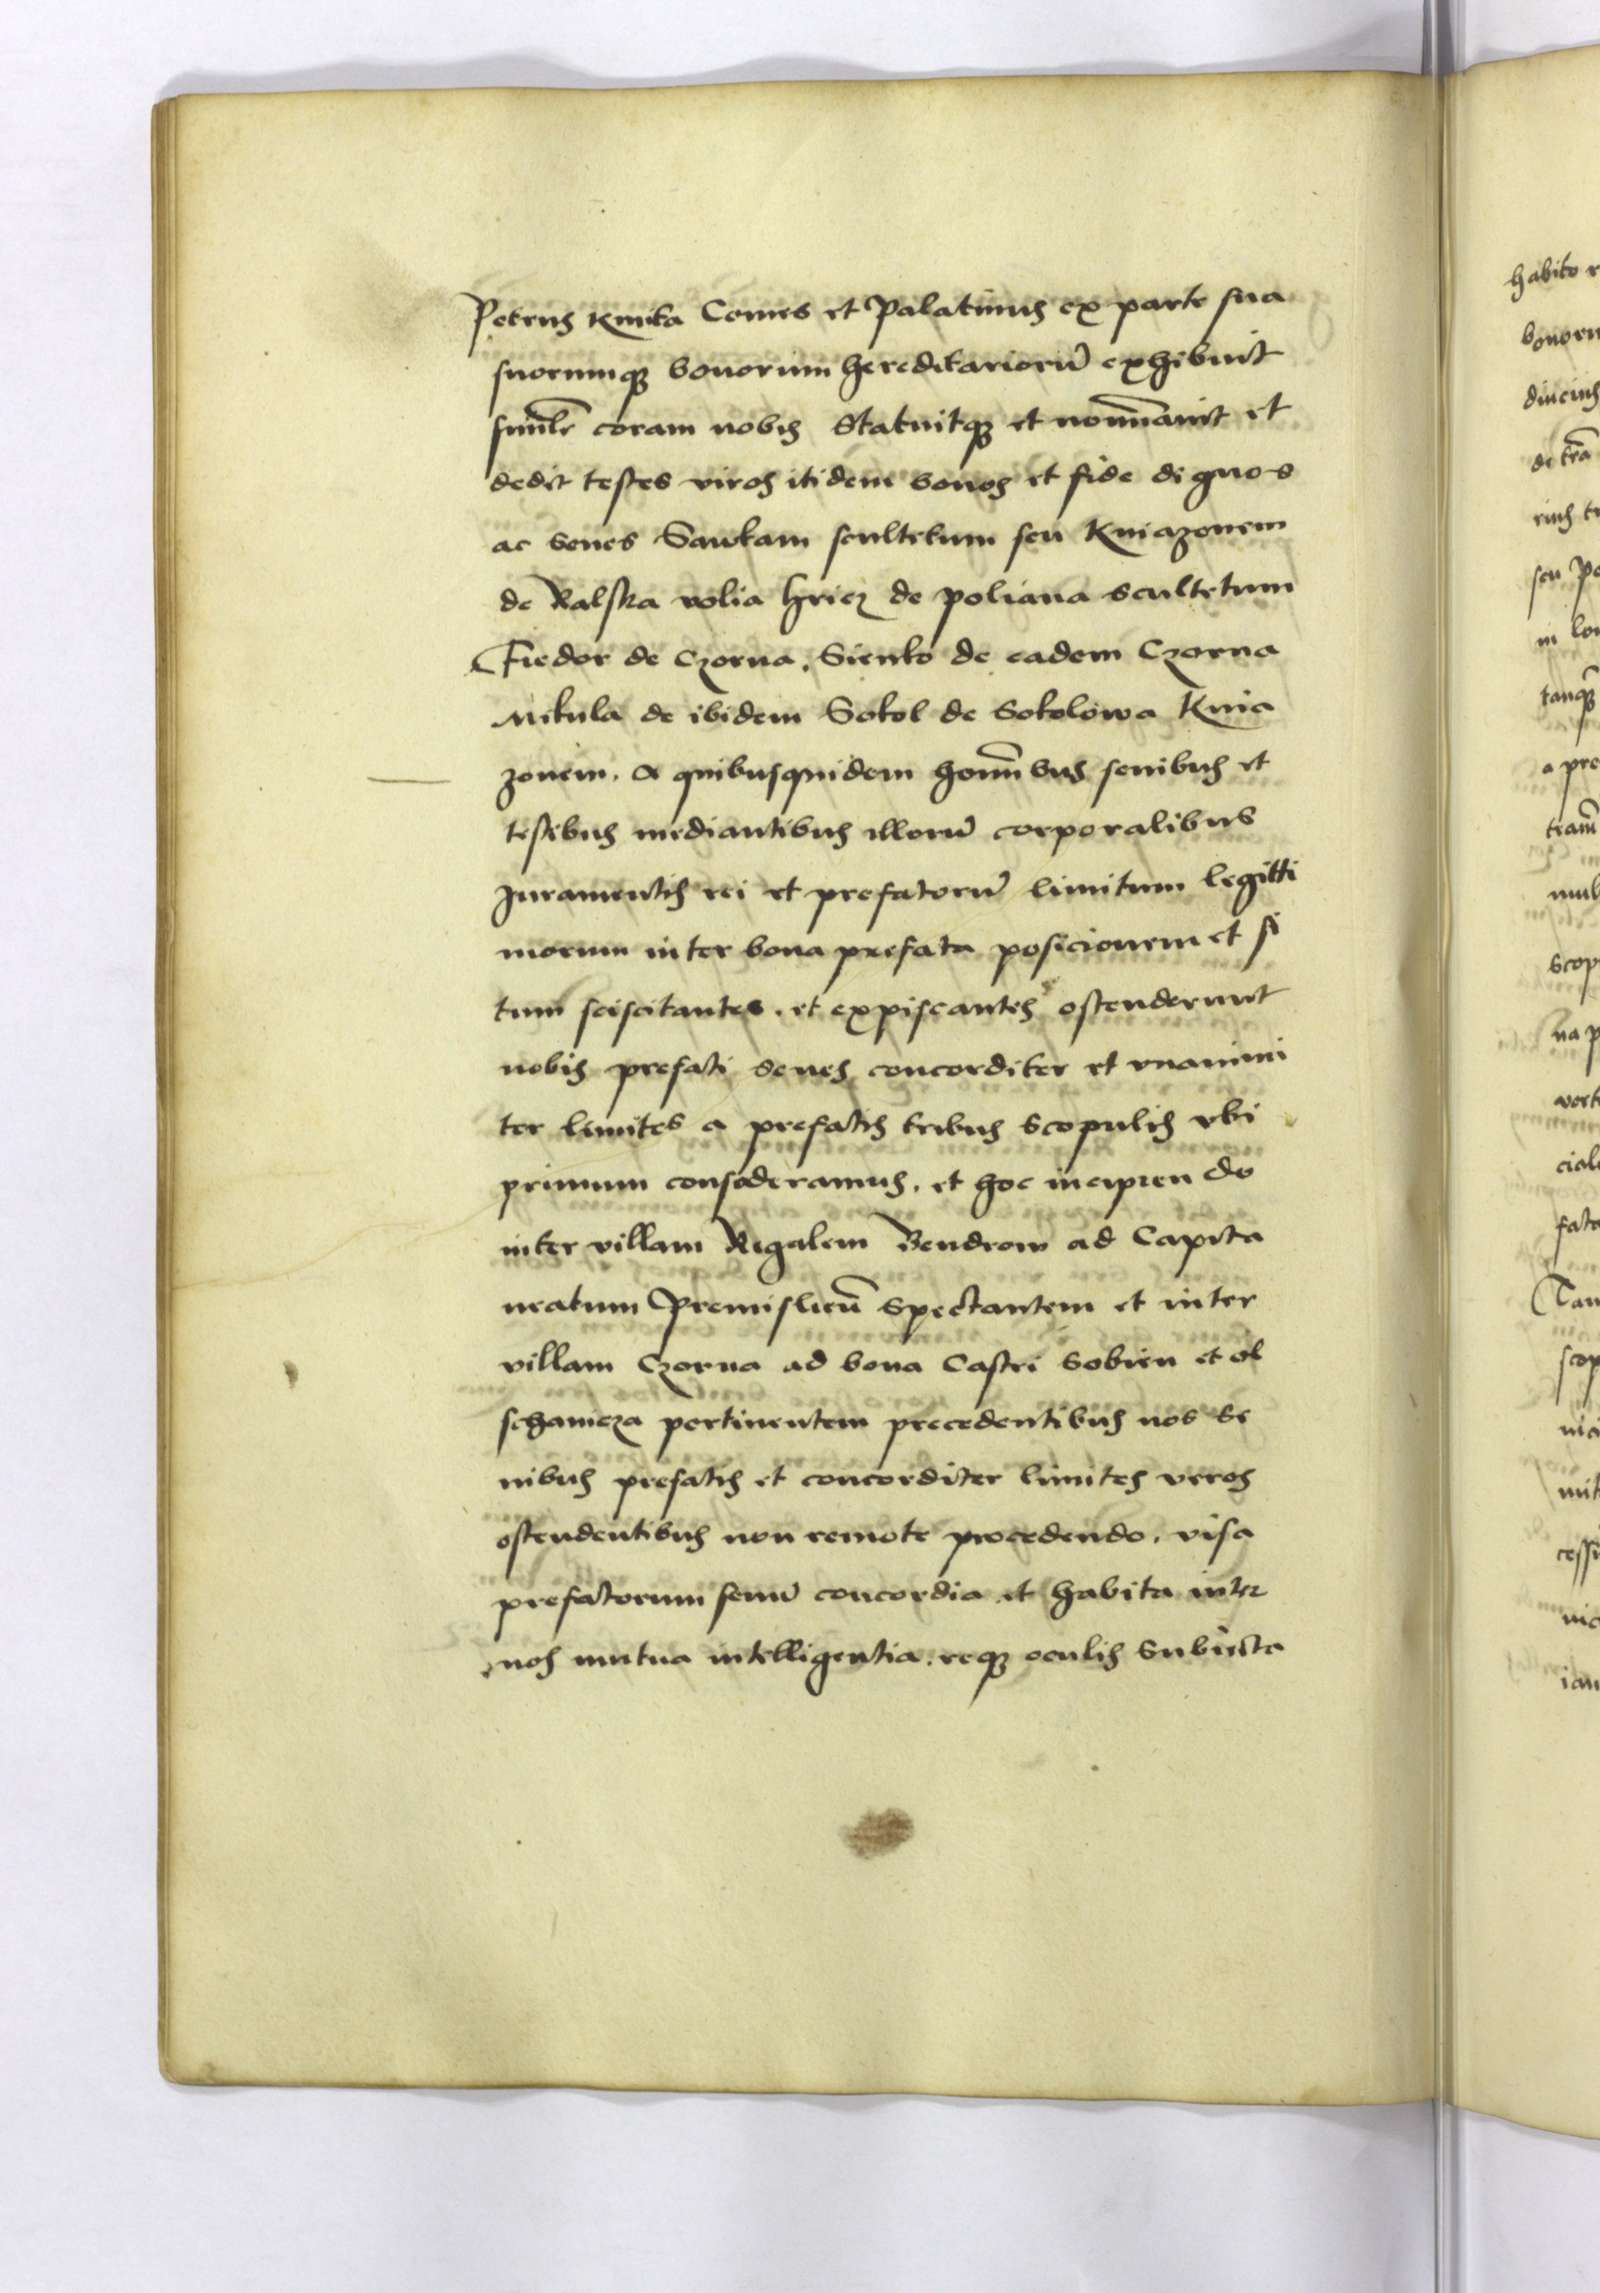 Petrus Kmita Comes et Palatinus ex parte sua
suorumq bonorum hereditariorũ exhibuit
simlr̃ coram nobis Statuitq et nom̃avit et
dedit testes viros itidem bonos et fide dignos
ac senes Sawkam scultetum seu Kniazonem
de Ralska volia hricz de poliana scultetum
Fiedor de Czorna. Sienko de eadem Czorna
Mikula de ibidem Sokol de Sokolowa Knia
zonem. A quibusquidem hom̃bus senibus et
testibus mediantibus illorũ corporalibus
Juramentis rei et prefatorũ limitum legitti
morum inter bona prefata posicionem et si
tum sciscitantes. et expiscantes ostenderunt
nobis prefati senes concorditer et vnanimi
ter limites a prefatis tribus scopulis vbi
primum consederamus. et hoc incipien do
inter villam Regalem Bendrow ad Capita
neatum Premislieñ spectantem et inter
villam Czorna ad bona Castri Sobien et ol
schamcza pertinentem precedentibus nos se
nibus prefatis et concorditer limites veros
ostendentibus non remote procedendo. visa
prefatorum senũ concordia et habita inter
nos mutua intelligentia. req oculis subiecta
habito